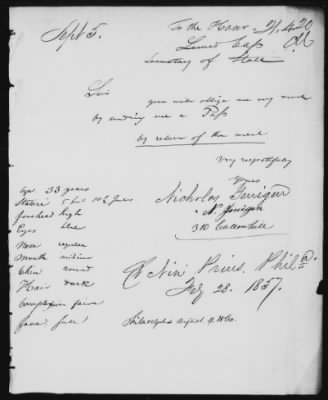 Sept 5.
To the Honr 21,420
Lewis Cass
Secretary of State
Sir
you will oblige me very much
by sending me a Pass
by return of the mail
Very respectfully
Yours
Nicholas
N.
310
Age 33 years
Stature 5 feet
forehead high
Eyes blue
Nose regular
Mouth medium
Chin round
Hair dark
Complexion fair
face full
Ct Nisi Prius. Phila.
28. 1857.
Philadelphia August